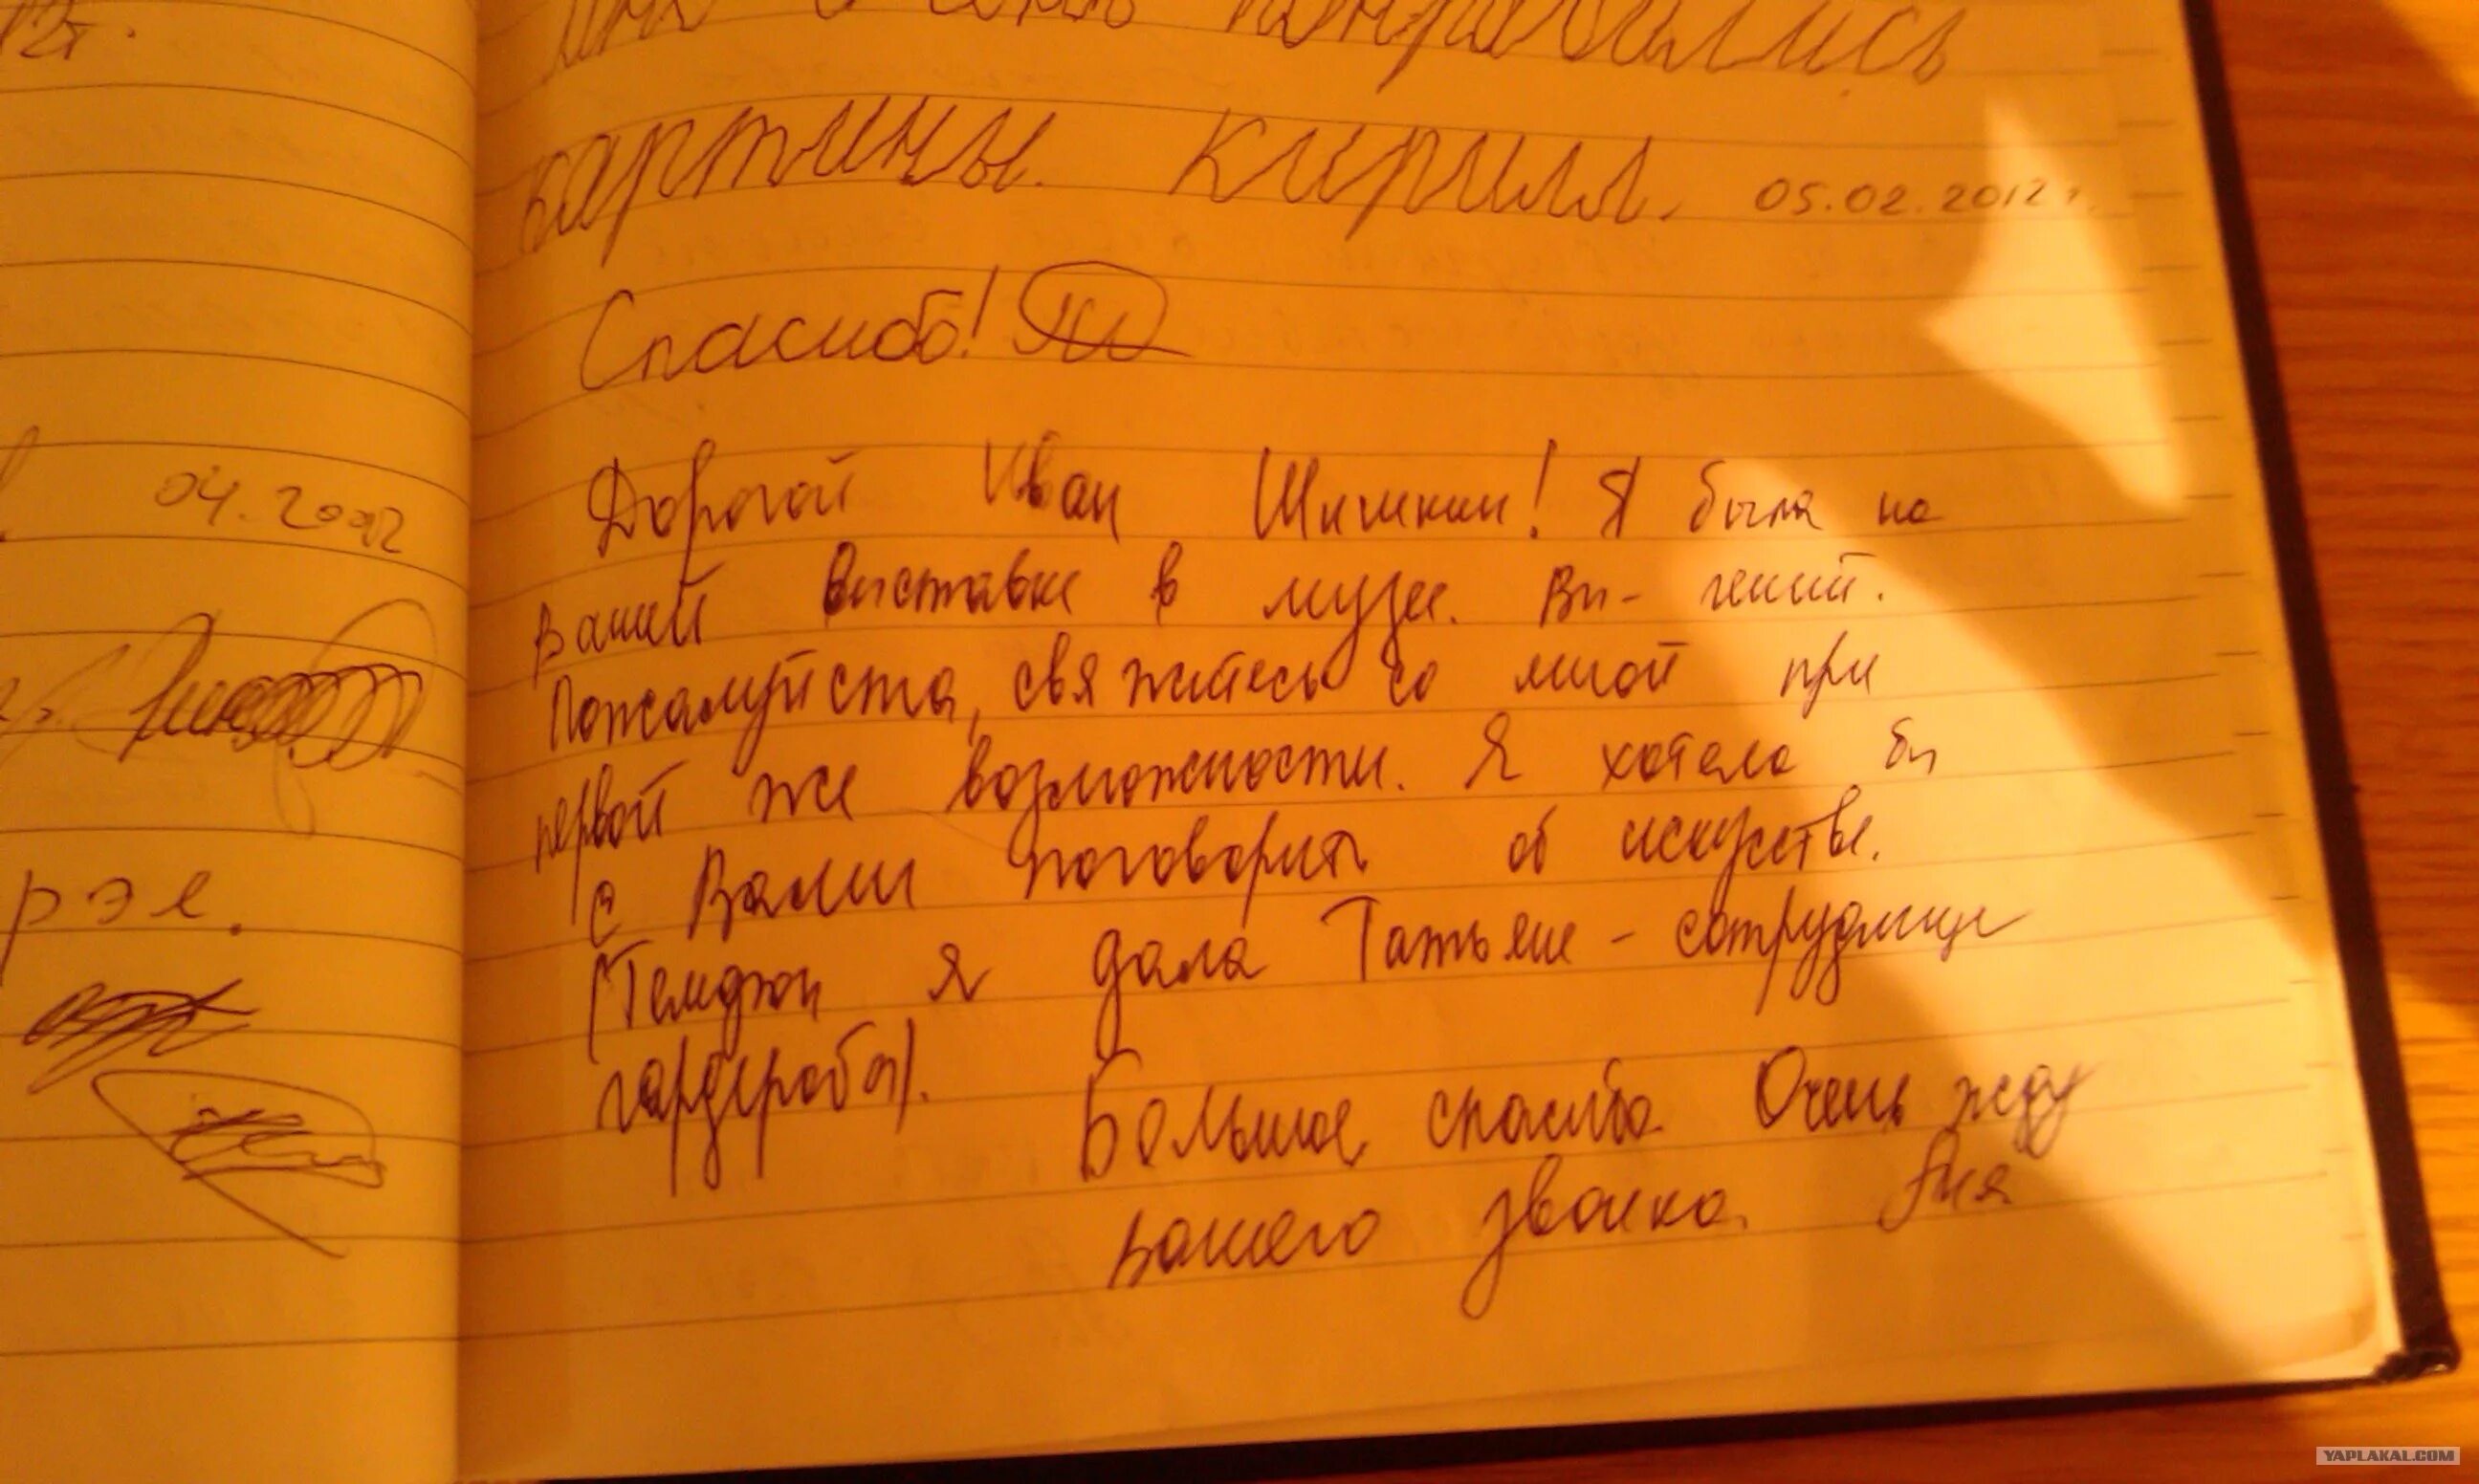 2г.
04.2002
рэе.
мне очень понравились
картины. Кирилл. 05.02.2012г.
Спасибо!
Дорогой Иван Шишкин! Я была на
Вашей Выставке в музее. Вы - гений.
Пожалуйста, свяжитесь со мной при
первой же возможности. Я хотела бы
с Вами поговорить об искусстве.
(Телефон я дала Татьяне - сотруднице
гардероба).
Большое спасибо. Очень жду
вашего звонка. Аня
YAPLAKAL.COM